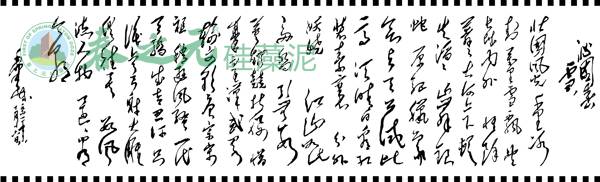 沁园春
雪
北国风光 千里冰
封 万里雪飘 望
长城内外 惟馀
莽莽 大河上下 顿
失滔滔 山舞银
蛇 原驰蜡象 欲
与天公试比
高 须晴日 看红
装素裹 分外
妖娆 江山如此
多娇 引无数
英雄竞折腰 惜
秦皇汉武 略
输文采 唐宗宋
祖 稍逊风骚 一代
天骄 成吉思汗 只
识弯弓射大雕
俱往矣 数风
流人物 还看
今朝
硅藻泥